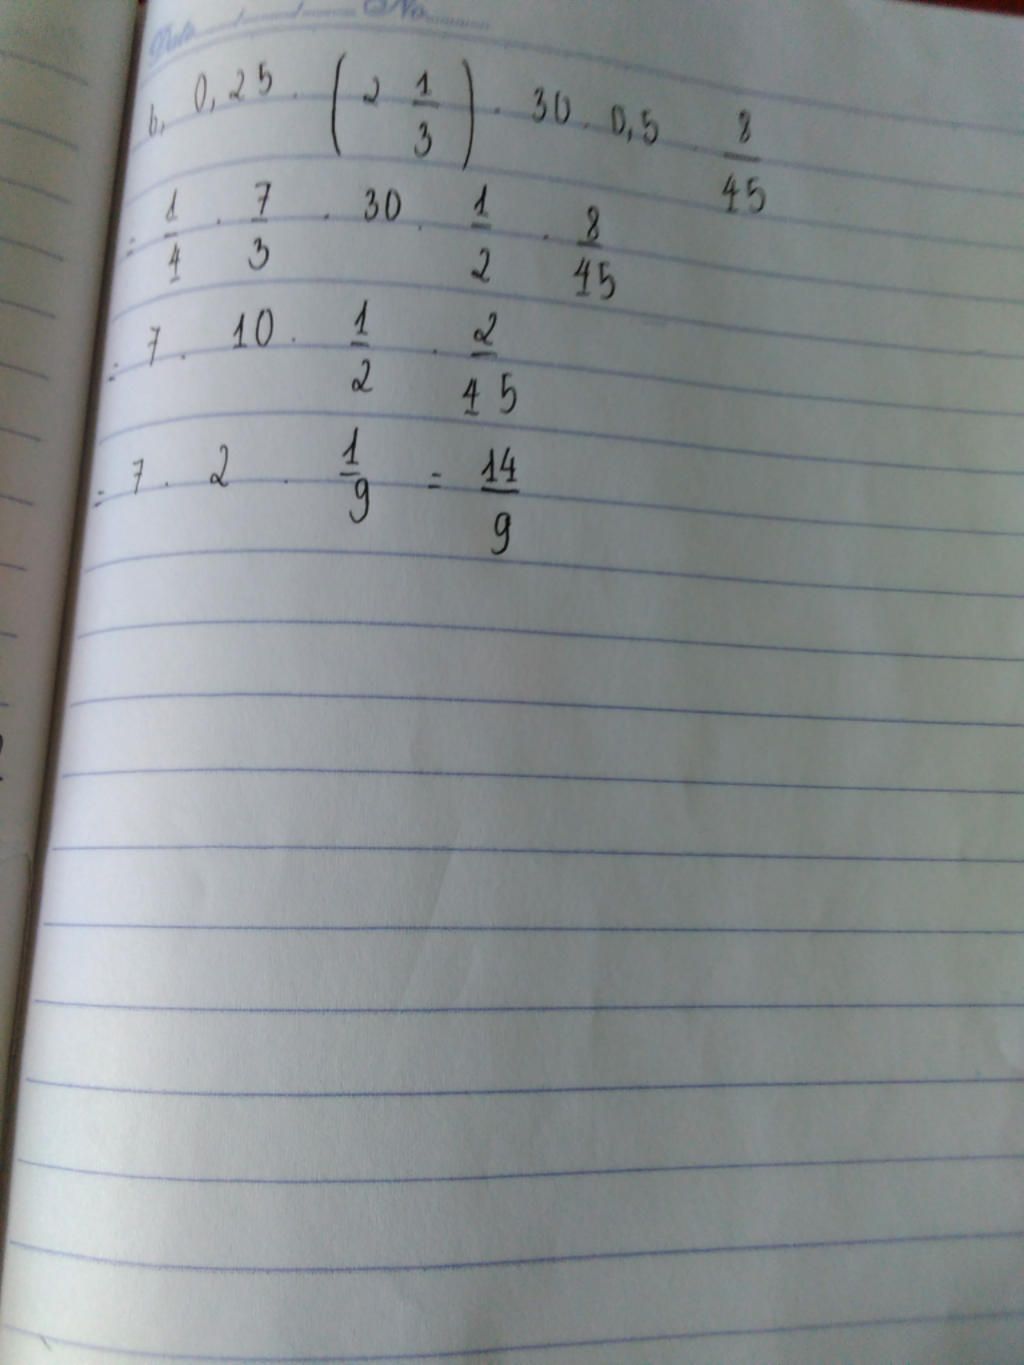 Date ...../...../..... No.........
b, 0,25 . (2 1/3) . 30 . 0,5 . 8/45
= 1/4 . 7/3 . 30 . 1/2 . 8/45
= 7 . 10 . 1/2 . 2/45
= 7 . 2 . 1/9 = 14/9